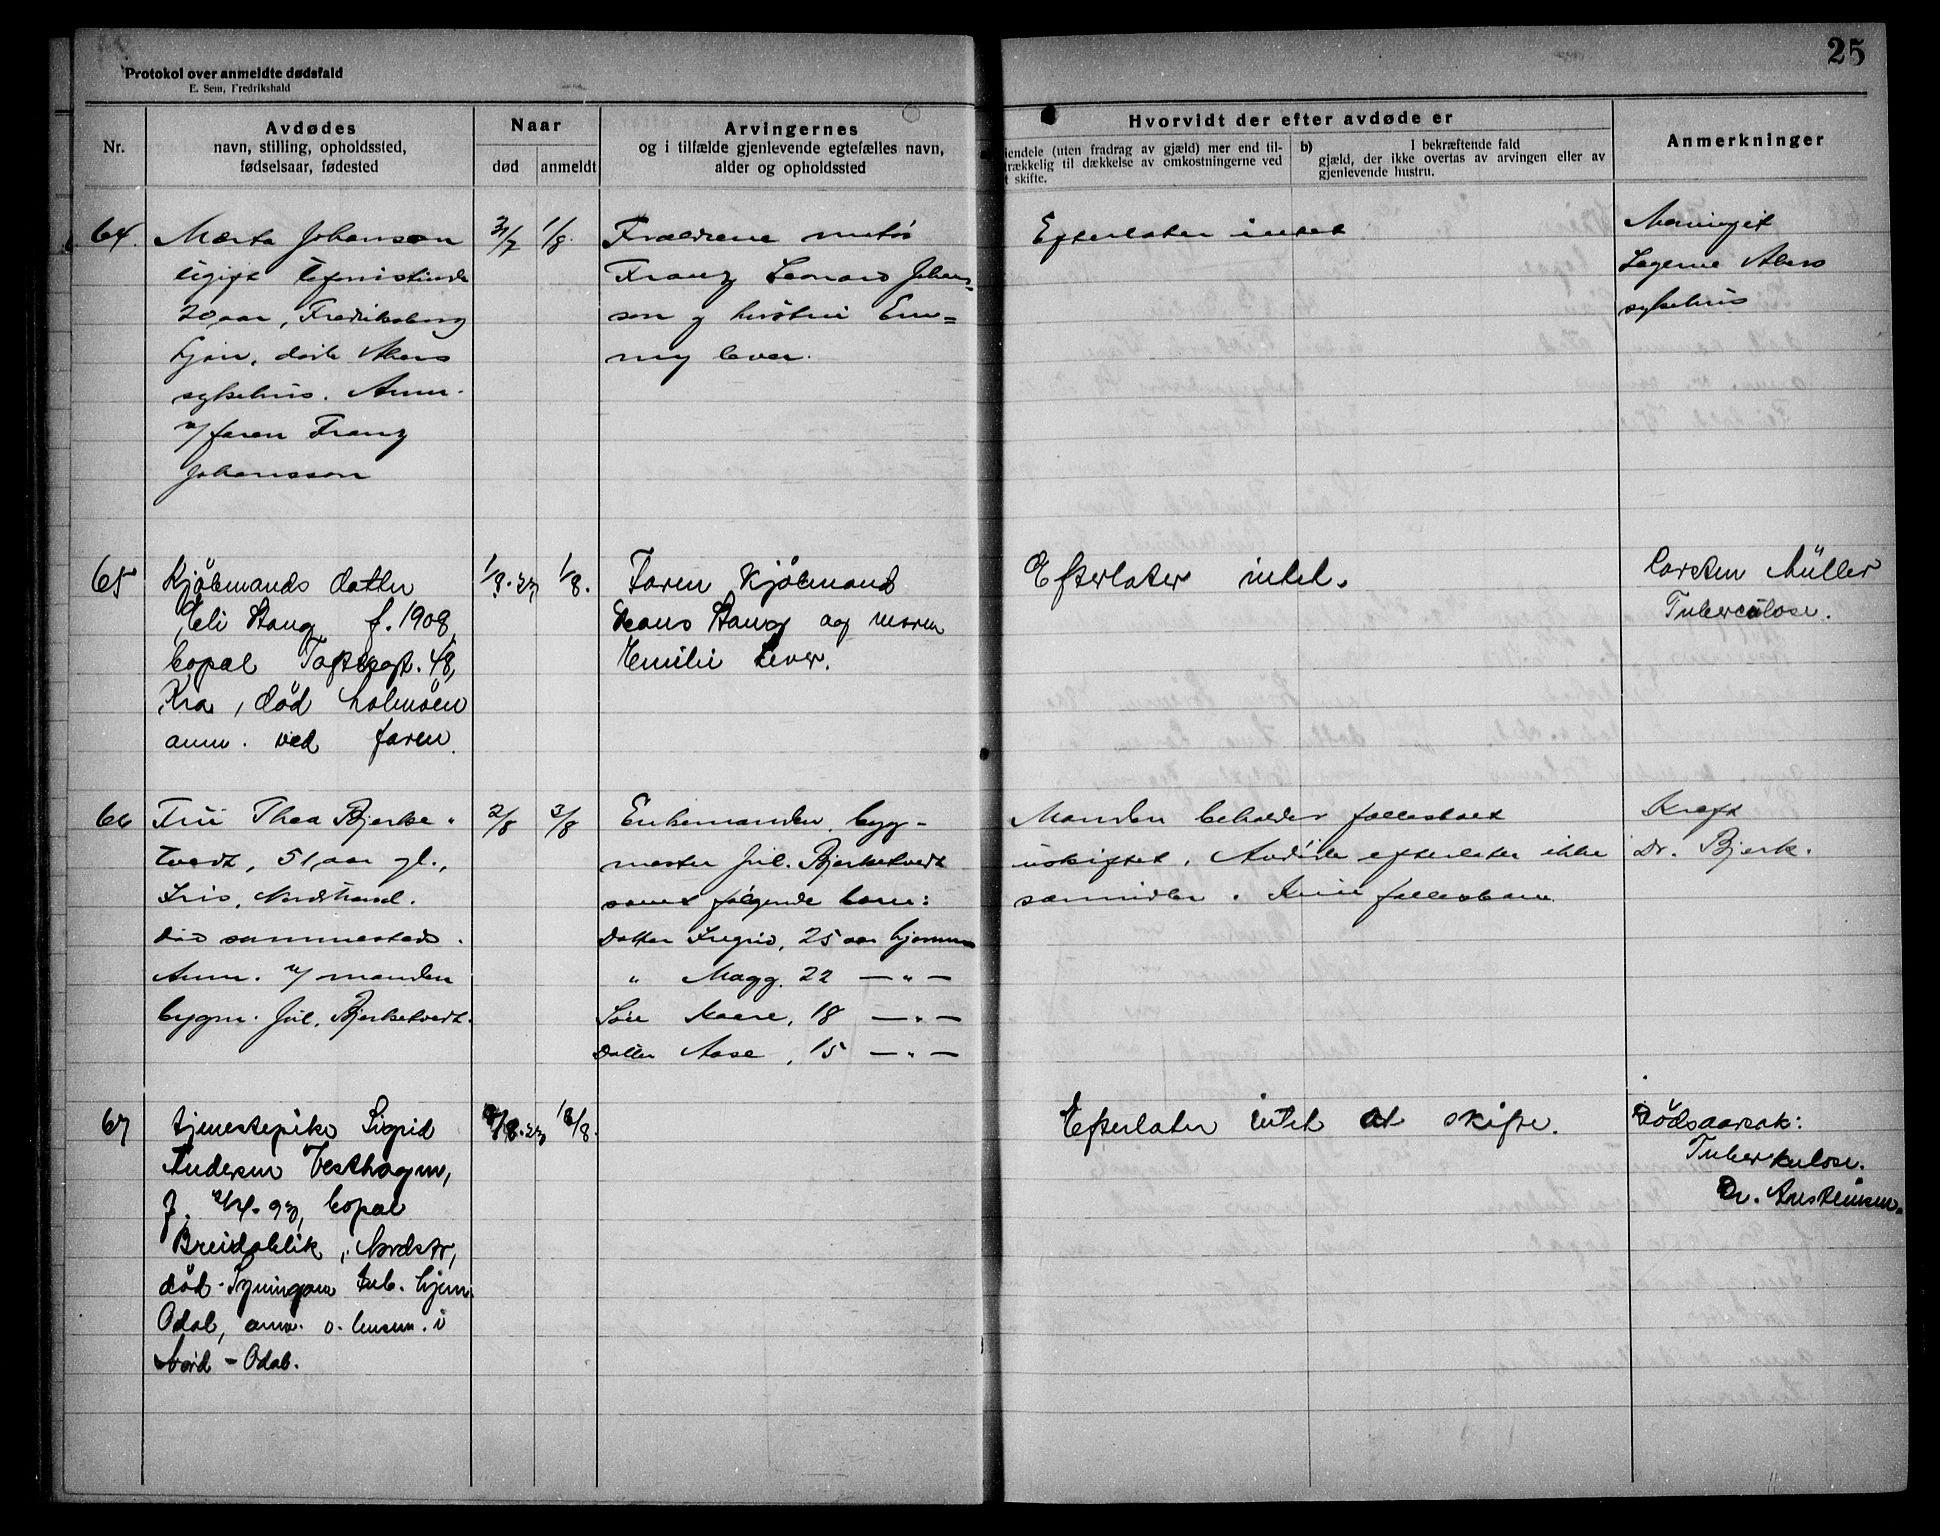 25
Protokol over anmeldte dødsfald
E. Sem, Fredrikshald
Nr.
Avdødes
navn, stilling, opholdssted,
fødselsaar, fødested
Naar
død
anmeldt
Arvingernes
og i tilfælde gjenlevende egtefælles navn,
alder og opholdssted
Hvorvidt der efter avdøde er
iendele (uten fradrag av gjæld) mer end til-
trækkelig til dækkelse av omkostningerne ved
t skifte.
b) I bekræftende fald
gjæld, der ikke overtas av arvingen eller av
gjenlevende hustru.
Anmerkninger
64.
Mærta Johanson
ugift
20 aar, Fredriksborg
hjem, døde Akers
sykehus. Anm.
v/ faren Franz
Johansson
31/7
1/8.
Forældrene
Franz Leonard Johan-
son og hustru Em-
my lever.
Efterlater intet
Meningit
Lægerne Akers
sykehus
65
Kjøbmands datter
Eli Stang f. 1908
bopæl Toftesgt. 48,
Kra, død Holmsøen
anm. ved faren.
1/8.23
1/8.
Faren Kjøbmand
Hans Stang og moren
Emilie lever.
Efterlater intet.
Carsten Müller
Tuberculose.
66
Fru Thea Bjerke-
tvedt, 51 aar gl.,
Iris, Nordstrand.
død sammesteds.
Anm. v/ manden
bygm. Jul. Bjerketvedt.
2/8
3/8
Enkemanden, byg-
mester Jul. Bjerketvedt
samt følgende barn:
Datter Ingrid, 25 aar hjemme
" Magg. 22 — " —
Søn Kaare, 18 — " —
Datter Aase, 15 — " —
Manden beholder fællesboet
uskiftet. Avdøde efterlater ikke
særmidler. Kun fællesbarn
Kræft
Dr. Bjerk.
67
tjenestepike Sigrid
Andersen Vesthagen,
f. 93, bopæl
Breidablik, Nordstr,
død tub. hjem
Odal, anm. o. lensm. i
Nord-Odal.
/8.23
18/8.
Efterlater intet at skifte.
Dødsaarsak:
Tuberkulose.
Dr.